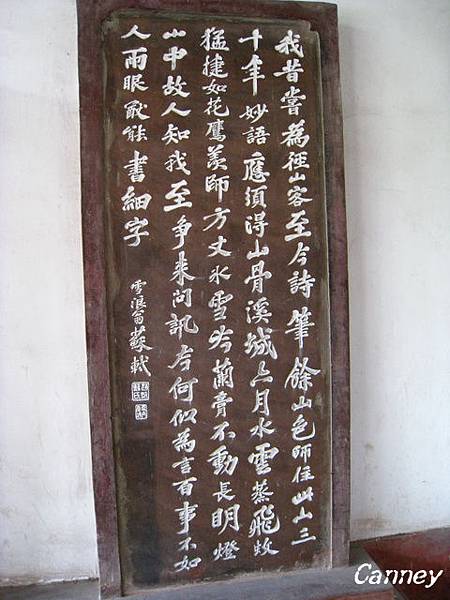 我昔嘗為徑山客至今詩筆餘山色師住此山三
十年妙語應須得山骨溪城六月水雲蒸飛蚊
猛捷如花鷹羨師方丈冰雪冷蘭膏不動長明燈
山中故人知我至争来問訊今何似為言百事不如
人兩眼猶能書細字
雪浪翁蘇軾
Canney